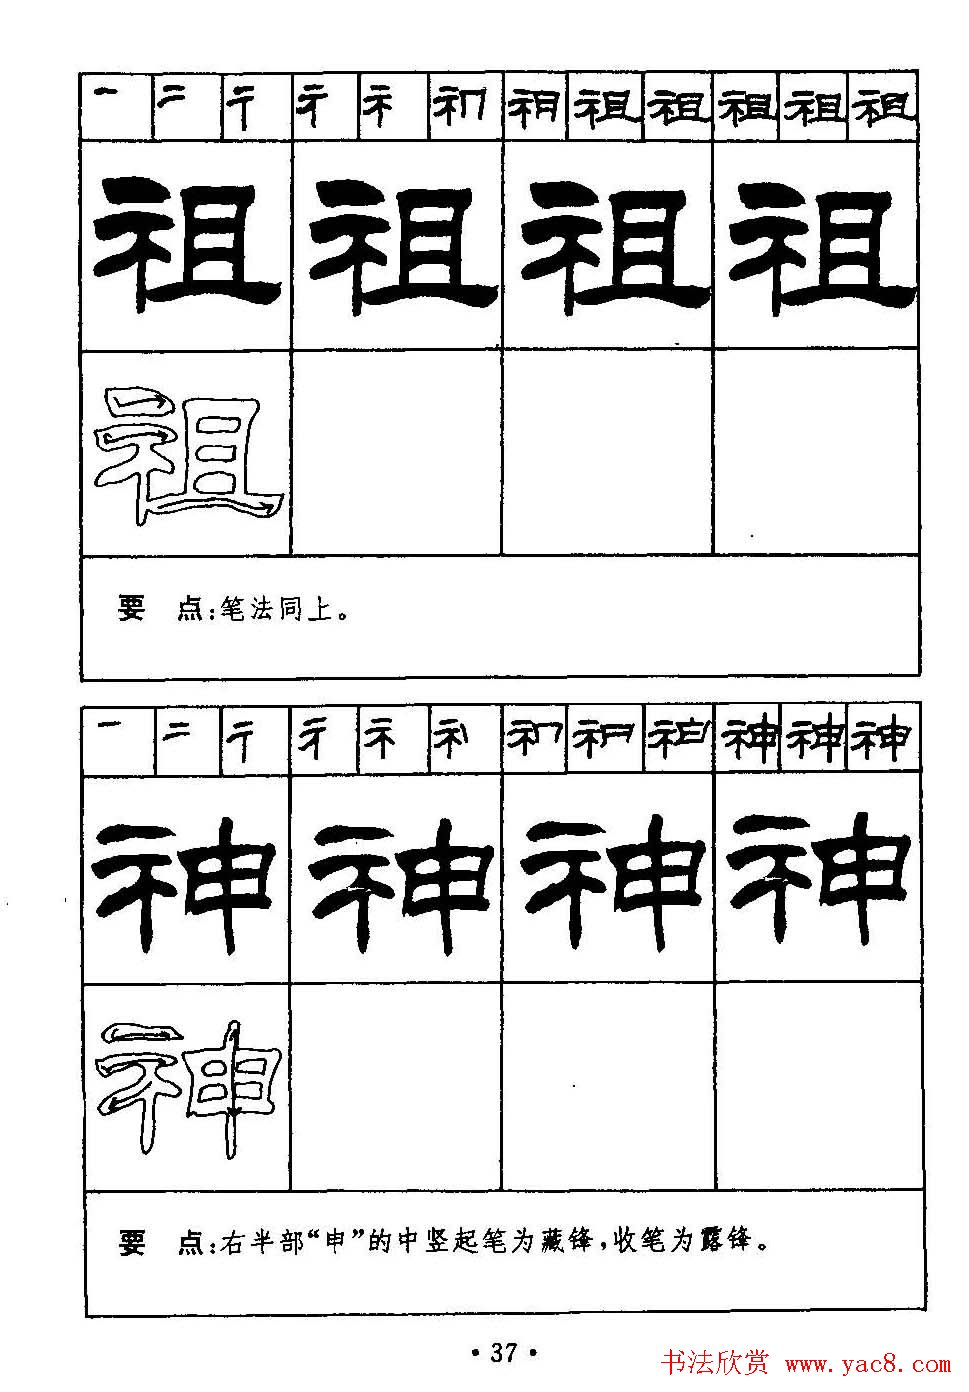 一 二 亍 礻 祖 祖 祖 祖 祖
祖 祖 祖 祖
祖
要 点:笔法同上。
一 二 亍 礻 神 神 神
神 神 神 神
神
要 点:右半部“申”的中竖起笔为藏锋,收笔为露锋。
·37·
书法欣赏 www.yac8.com